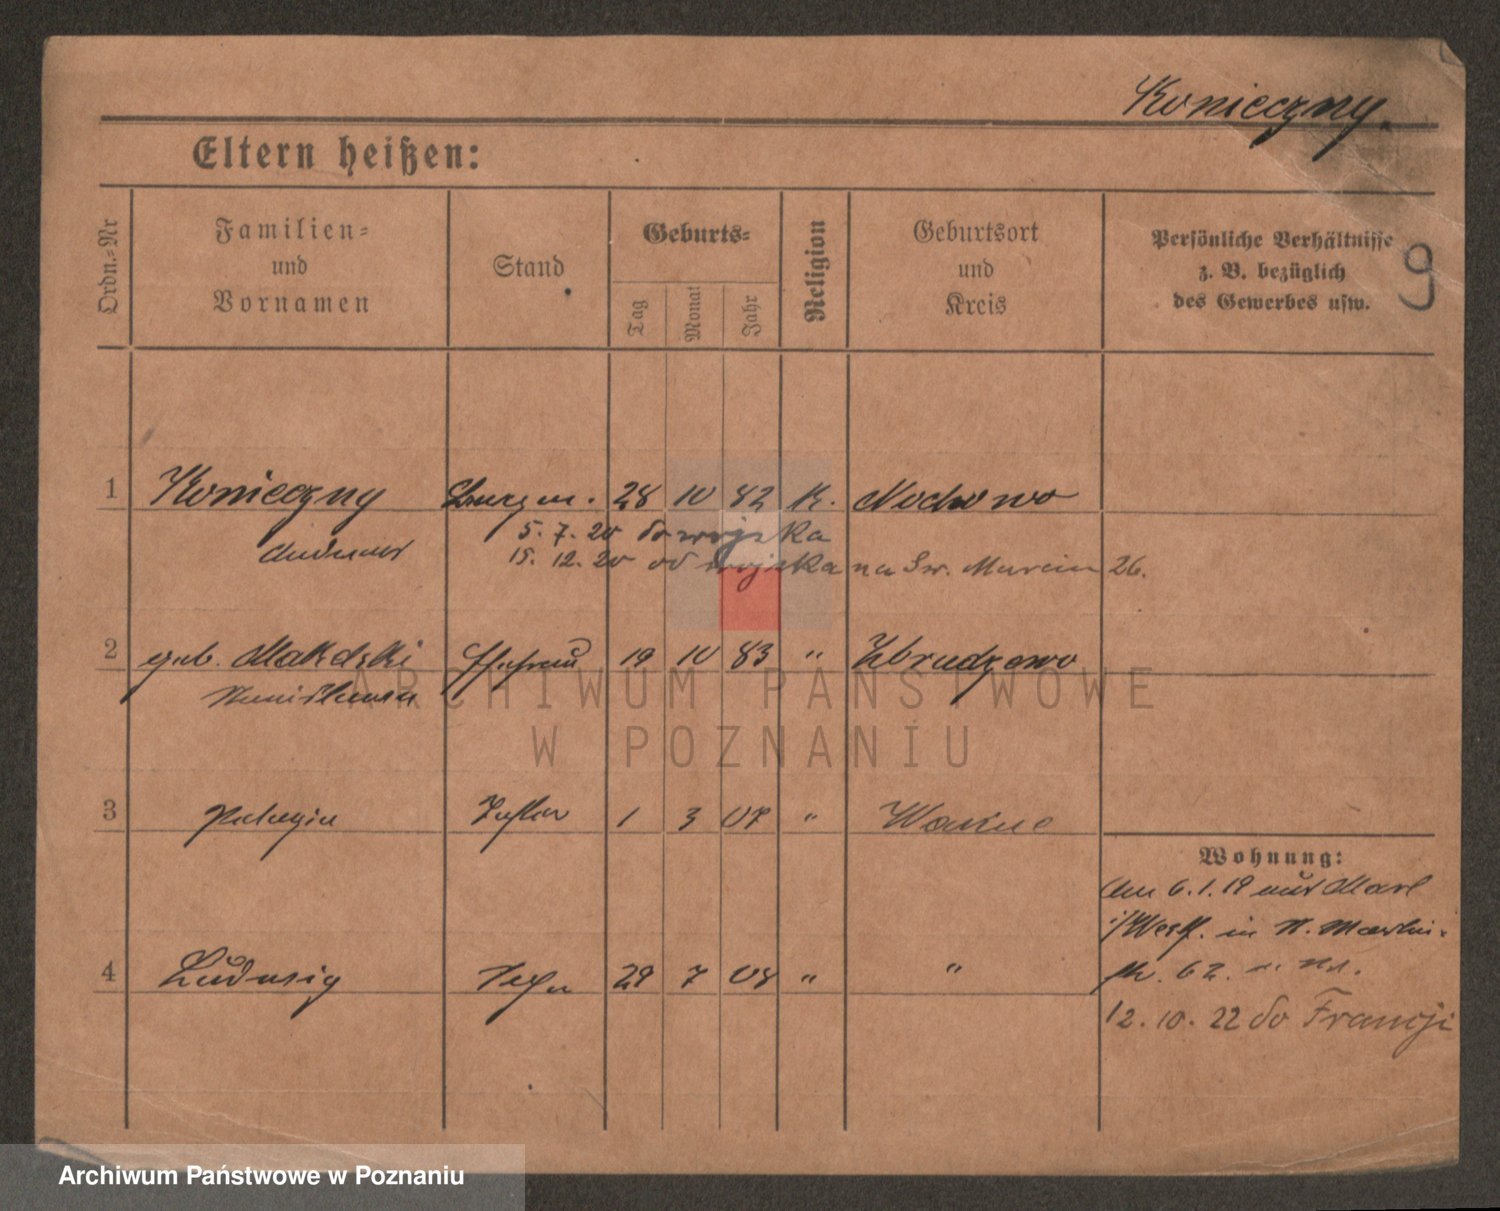 Konieczny.
Eltern heißen:
Ordn.-Nr
Familien-
und
Vornamen
Stand
Geburts-
Tag
Monat
Jahr
Religion
Geburtsort
und
Kreis
Persönliche Verhältnisse
z. B. bezüglich
des Gewerbes usw.
9
1 Konieczny 28 10 82 K. Nochowo
5. 7. 20 do wojska
15. 12. 20 od wojska na Sw. Marcin 26.
2 geb. Ehefrau 19 10 83 " Zbrudzewo
Stanislawa
ARCHIWUM PAŃSTWOWE
W POZNANIU
3 Pelagia Tochter 1 3 07 "
Wohnung:
Am 6.1.19 aus Marl
i/Westf. in St. Martin-
str. 62.
4 Ludwig 29 7 08 " "
12. 10. 22 do Francji
Archiwum Państwowe w Poznaniu